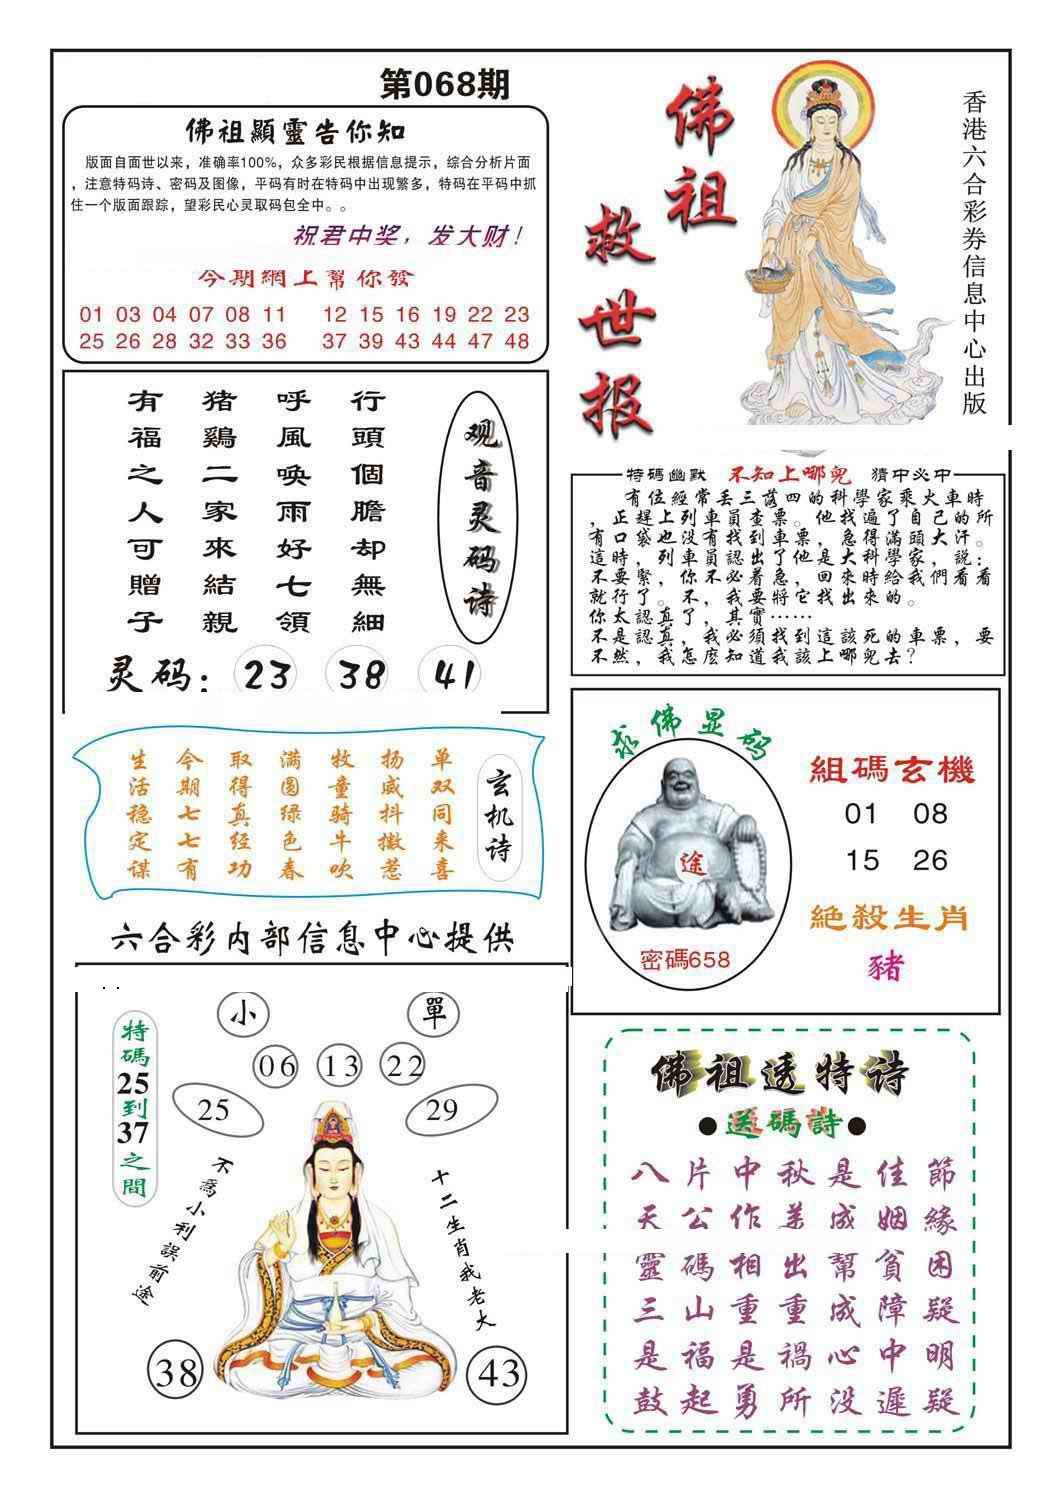 第068期
佛祖顯靈告你知
版面自面世以来，准确率100%，众多彩民根据信息提示，综合分析片面
，注意特码诗、密码及图像，平码有时在特码中出现繁多，特码在平码中抓
住一个版面跟踪，望彩民心灵取码包全中。。
祝君中奖，发大财！
今期網上幫你發
01 03 04 07 08 11 12 15 16 19 22 23
25 26 28 32 33 36 37 39 43 44 47 48
佛祖
救世报
香港六合彩券信息中心出版
观音灵码诗
行頭個膽却無細
呼風喚雨好七領
猪鷄二家來結親
有福之人可贈子
灵码：23 38 41
特碼幽默 不知上哪兒 猜中必中
有位經常丢三落四的科學家乘火車時
，正趕上列車員查票。他找遍了自己的所
有口袋也没有找到車票，急得滿頭大汗。
這時，列車員認出了他是大科學家，説：
不要緊，你不必着急，回來時給我們看看
就行了。不，我要將它找出來的。
你太認真了，其實……
不是認真，我必須找到這該死的車票，要
不然，我怎麽知道我該上哪兒去？
玄机诗
单双同来喜
扬威抖擞惹
牧童骑牛吹
满圆绿色春
取得真经功
今期七七有
生活稳定谋
求佛显码
途
密碼658
組碼玄機
01 08
15 26
絕殺生肖
豬
六合彩内部信息中心提供
小
單
特碼25到37之間
06 13 22
25
29
不為小利誤前途
十二生肖我老大
38
43
佛祖透特诗
●送碼詩●
八片中秋是佳節
天公作美成姻緣
靈碼相出幫貧困
三山重重成障疑
是福是禍心中明
鼓起勇所没遲疑